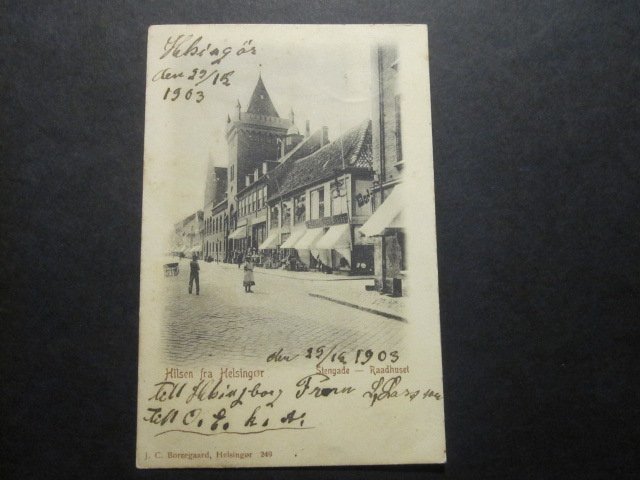 Helsingör
den 29/12
1903
den 29/12 1903
Hilsen fra Helsingør
Stengade — Raadhuset
till Helsingborg From L, Larsson
till
J. C. Borregaard, Helsingør 249